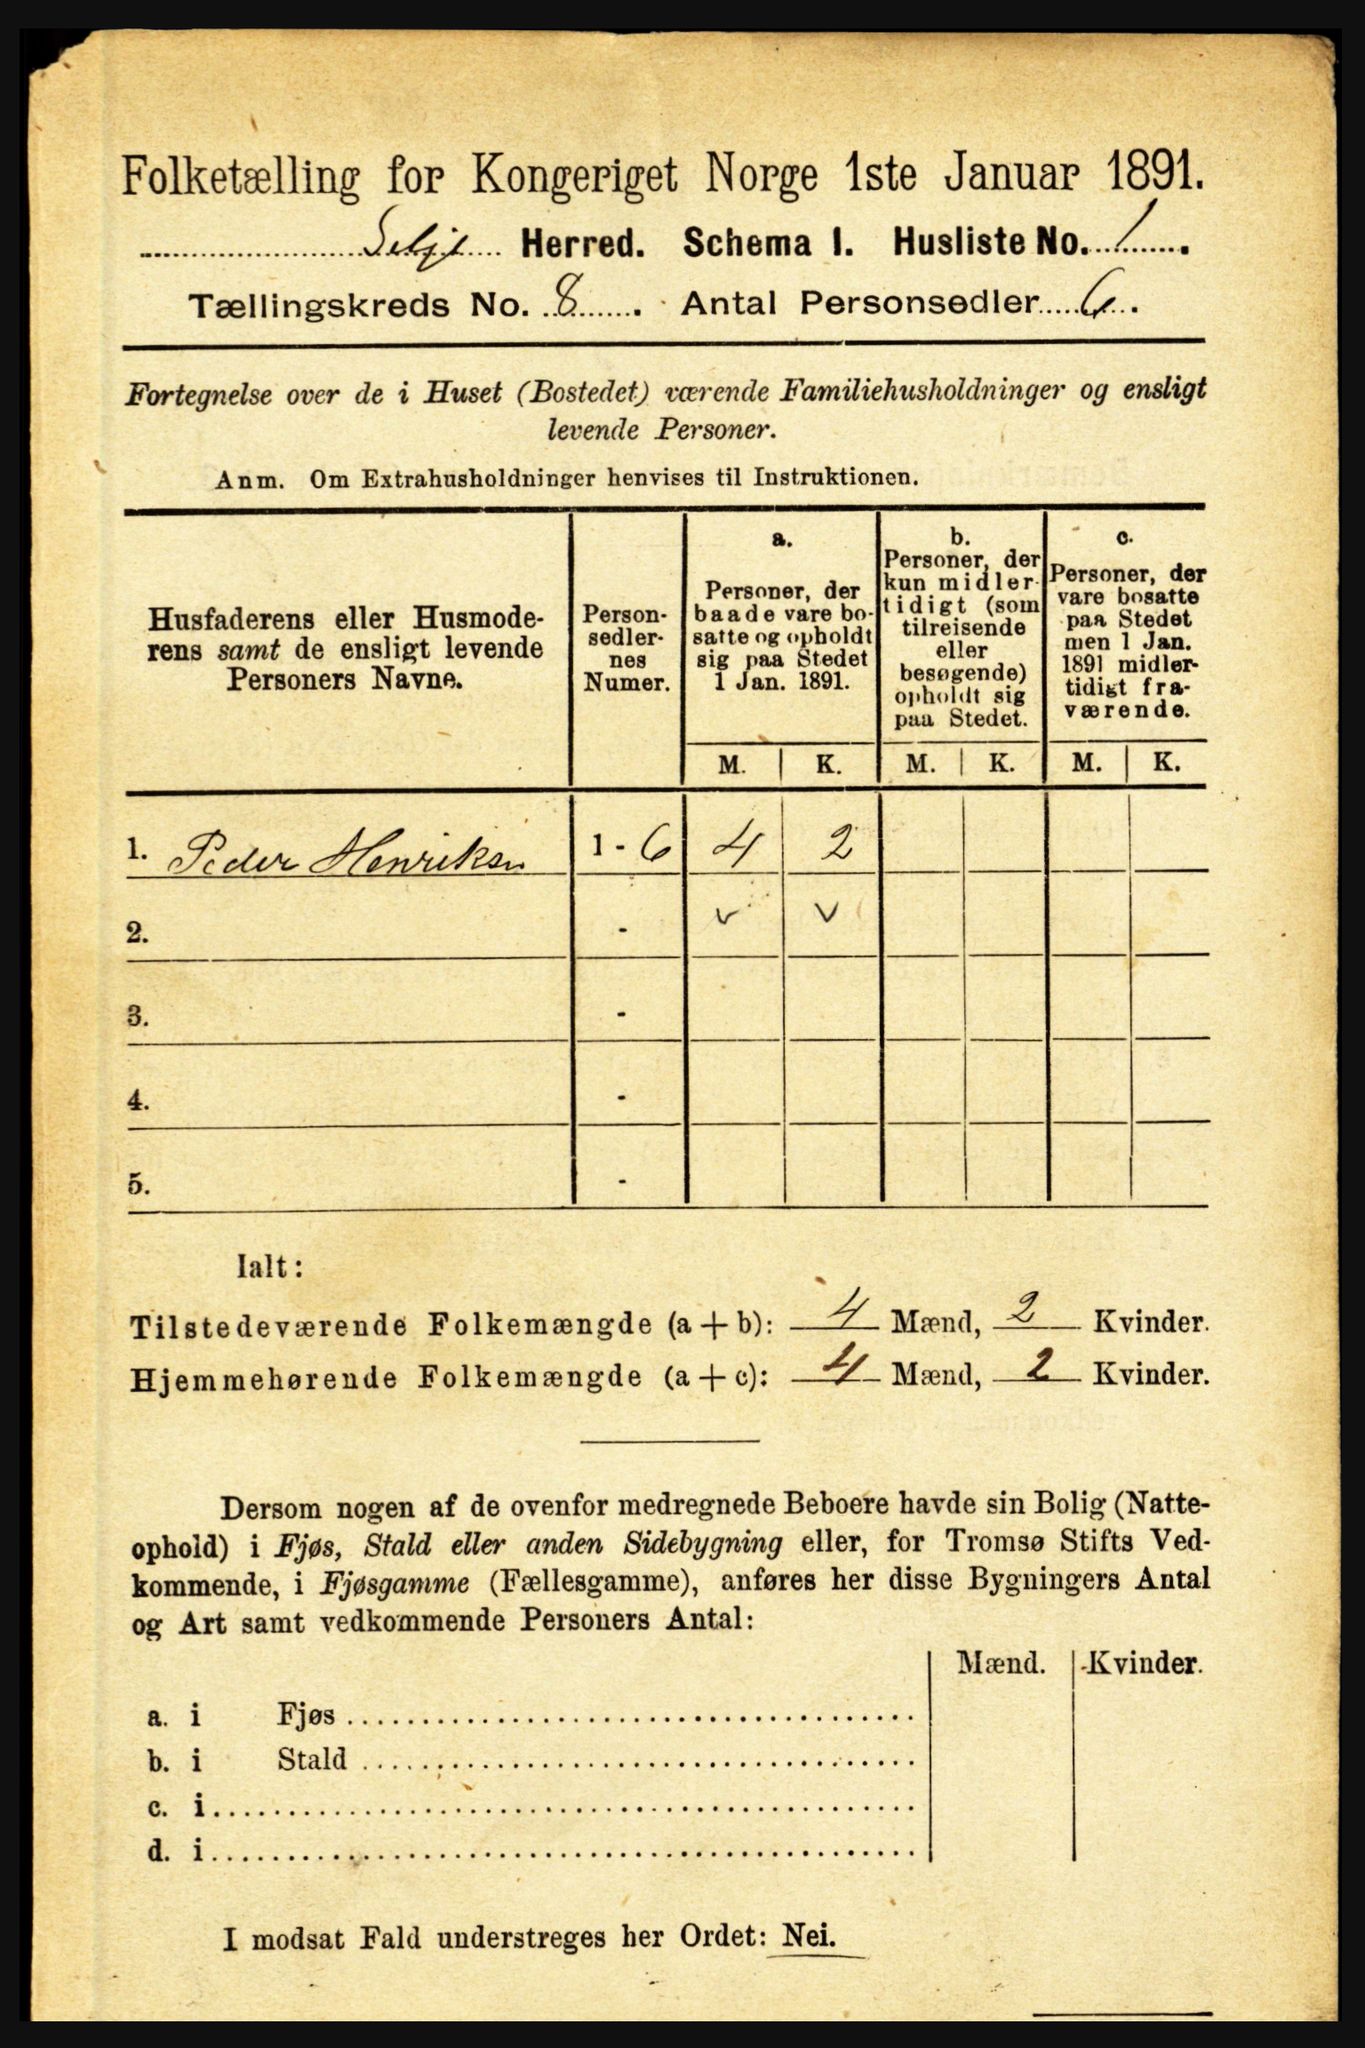 Folketælling for Kongeriget Norge 1ste Januar 1891.
Selje Herred. Schema I. Husliste No. 1.
Tællingskreds No. 8. Antal Personsedler 6.
Fortegnelse over de i Huset (Bostedet) værende Familiehusholdninger og ensligt
levende Personer.
Anm. Om Extrahusholdninger henvises til Instruktionen.
Husfaderens eller Husmode-
rens samt de ensligt levende
Personers Navne.
Person-
sedler-
nes
Numer.
a.
Personer, der
baade vare bo-
satte og opholdt
sig paa Stedet
1 Jan. 1891.
b.
Personer, der
kun midler-
tidigt (som
tilreisende
eller
besøgende)
opholdt sig
paa Stedet.
c.
Personer, der
vare bosatte
paa Stedet
men 1 Jan.
1891 midler-
tidigt fra-
værende.
M. K. M. K. M. K.
1. Peder Henriksen 1 - 6 4 2
2. - v v
3. -
4. -
5. -
Ialt:
Tilstedeværende Folkemængde (a + b): 4 Mænd, 2 Kvinder.
Hjemmehørende Folkemængde (a + c): 4 Mænd, 2 Kvinder.
Dersom nogen af de ovenfor medregnede Beboere havde sin Bolig (Natte-
ophold) i Fjøs, Stald eller anden Sidebygning eller, for Tromsø Stifts Ved-
kommende, i Fjøsgamme (Fællesgamme), anføres her disse Bygningers Antal
og Art samt vedkommende Personers Antal:
Mænd. Kvinder.
a. i Fjøs
b. i Stald
c. i
d. i
I modsat Fald understreges her Ordet: Nei.